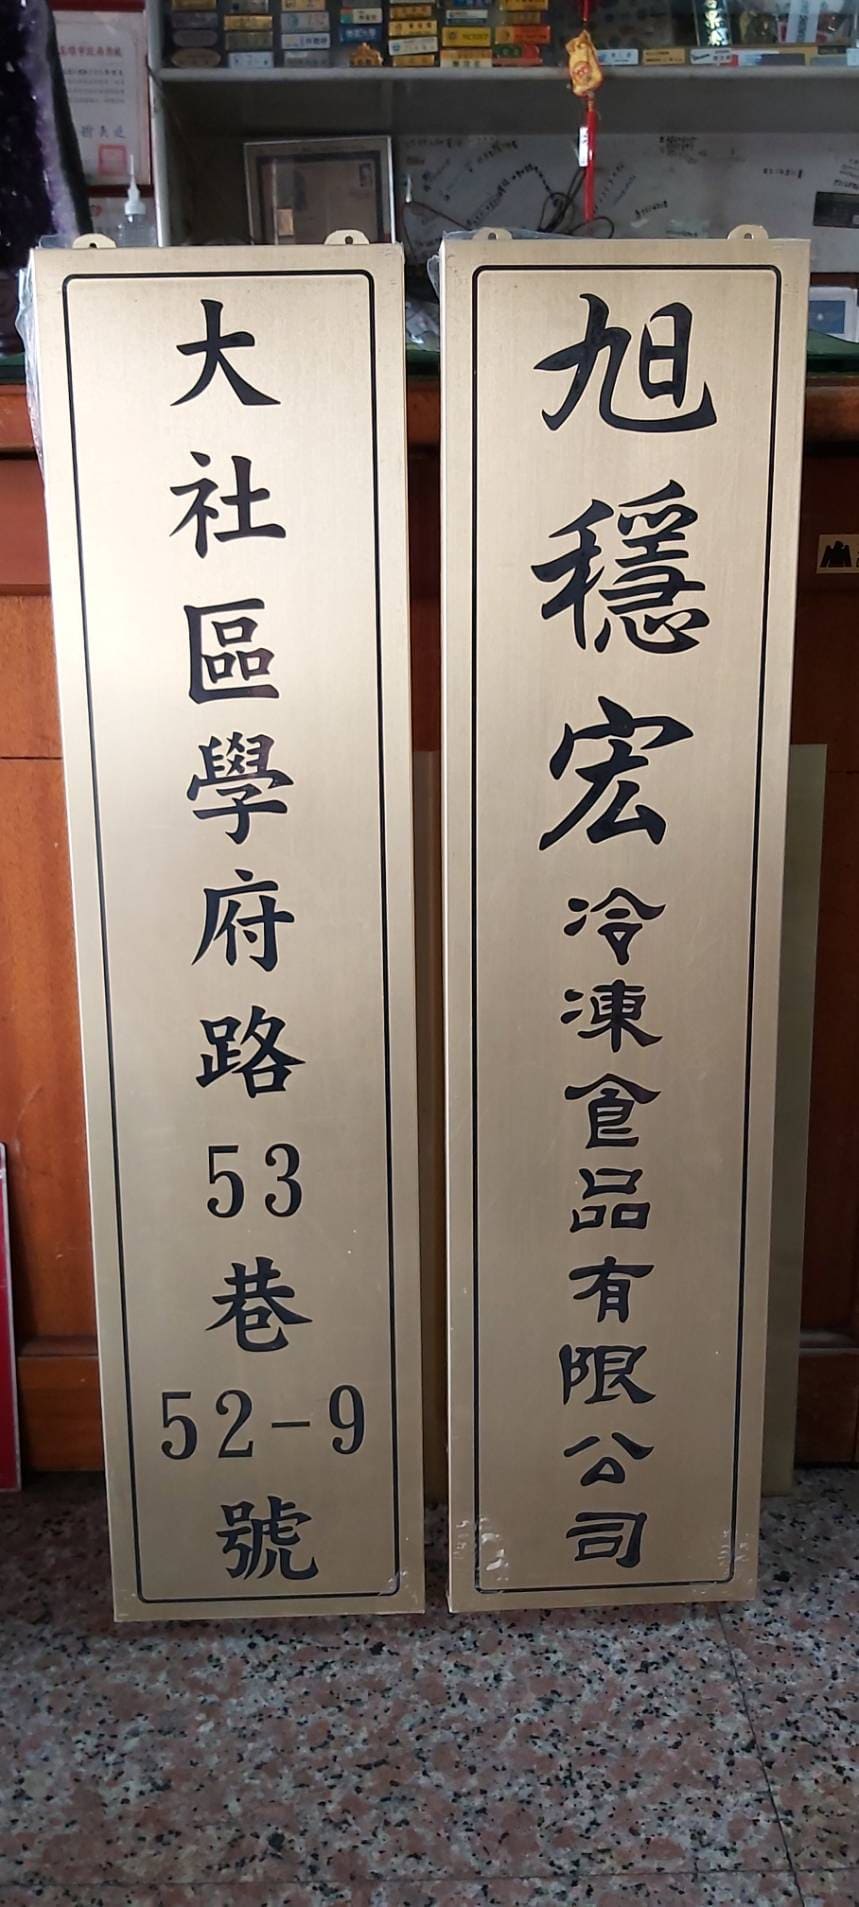 旭穩宏冷凍食品有限公司
大社區學府路53巷52-9號